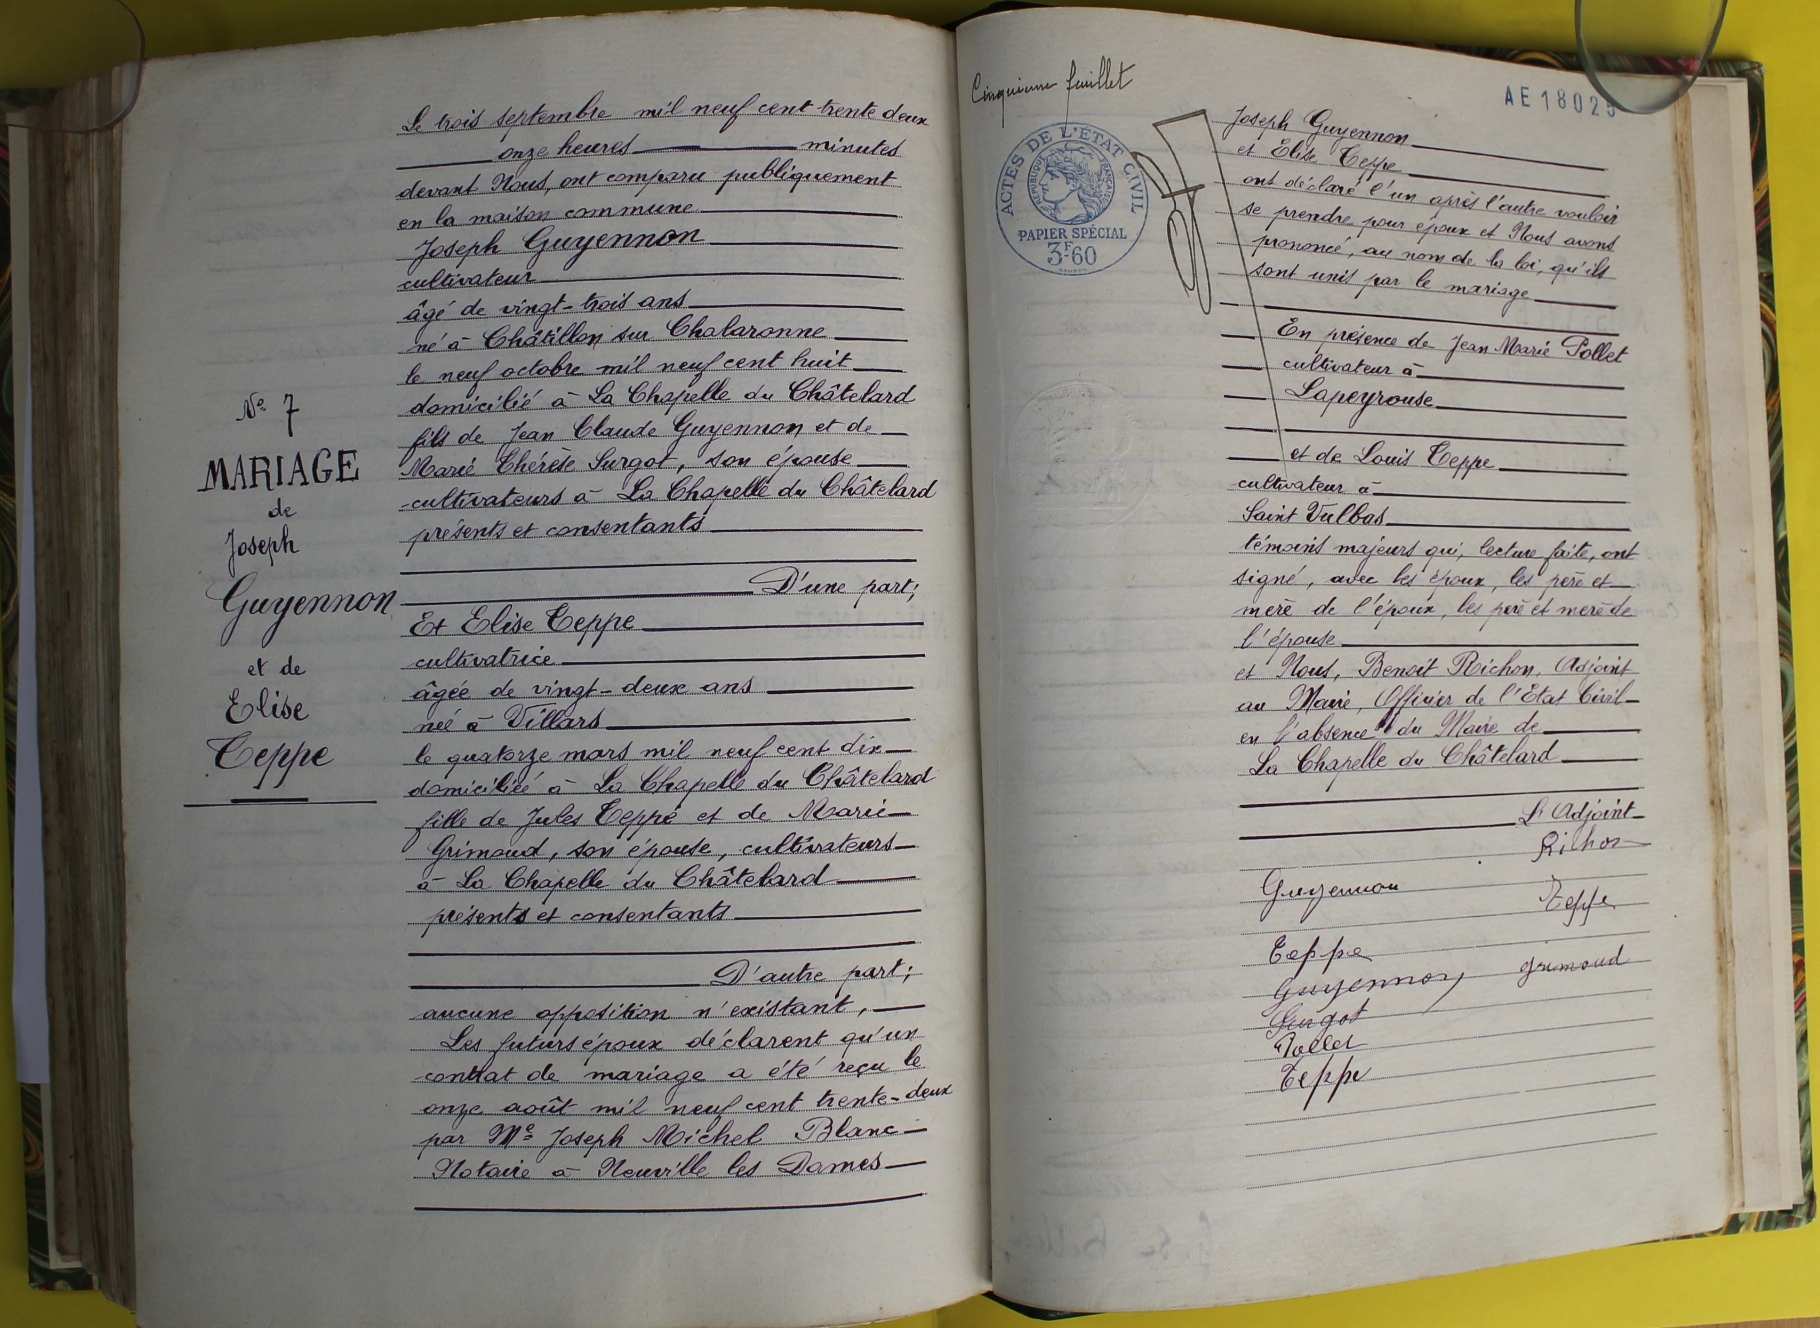 Nº 7
MARIAGE
de
Joseph
Guyennon
et de
Elise
Teppe
Le trois septembre mil neuf cent trente deux
onze heures minutes
devant Nous, ont comparu publiquement
en la maison commune
Joseph Guyennon
cultivateur
âgé de vingt-trois ans
né à Châtillon sur Chalaronne
le neuf octobre mil neuf cent huit
domicilié à La Chapelle du Châtelard
fils de Jean Claude Guyennon et de
Marie Thérèse Surgot, son épouse
cultivateurs à La Chapelle du Châtelard
présents et consentants
D'une part;
Et Elise Teppe
cultivatrice
âgée de vingt-deux ans
née à Villars
le quatorze mars mil neuf cent dix
domiciliée à La Chapelle du Châtelard
fille de Jules Teppe et de Marie
Grimaud, son épouse, cultivateurs
à La Chapelle du Châtelard
présents et consentants
D'autre part;
aucune opposition n'existant,
Les futurs époux déclarent qu'un
contrat de mariage a été reçu le
onze août mil neuf cent trente-deux
par Me Joseph Michel Blanc
Notaire à Neuville les Dames
Cinquième feuillet
AE18025
ACTES DE L'ÉTAT CIVIL
RÉPUBLIQUE FRANÇAISE
PAPIER SPÉCIAL
3F-60
Joseph Guyennon
et Elise Teppe
ont déclaré l'un après l'autre vouloir
se prendre pour époux et Nous avons
prononcé, au nom de la loi, qu'ils
sont unis par le mariage
En présence de Jean Marie Pollet
cultivateur à
Lapeyrouse
et de Louis Teppe
cultivateur à
Saint Vulbas
témoins majeurs qui, lecture faite, ont
signé, avec les époux, les père et
mère de l'époux, les père et mère de
l'épouse
et Nous, Benoit Richon, Adjoint
au Maire, Officier de l'Etat Civil
en l'absence du Maire de
La Chapelle du Châtelard
L'Adjoint
Richon
Guyennon Teppe
Teppe
Guyennon Grimaud
Surgot
Pollet
Teppe